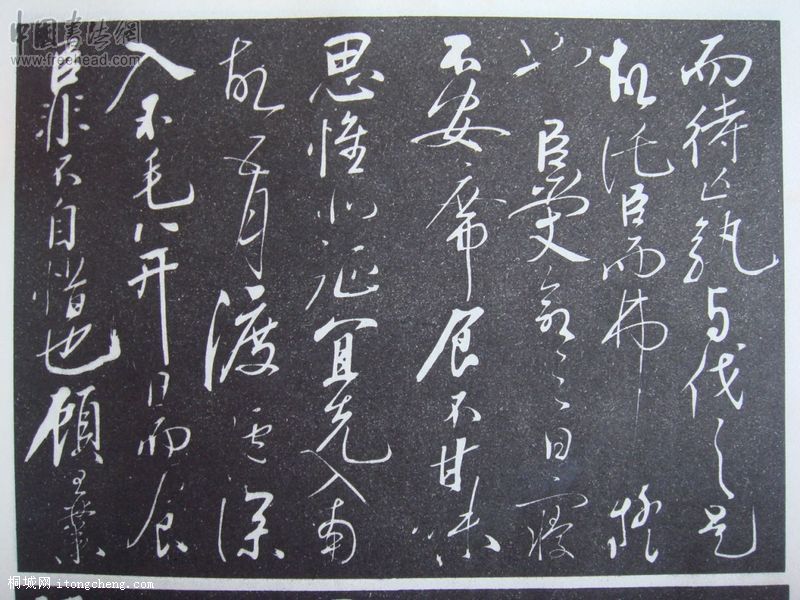 中國書法網
www.freehead.com
而待亡孰与伐之是
故託臣而弗疑
也臣受命之日寢
不安席食不甘味
思惟北征宜先入南
故五月渡瀘深
入不毛并日而食
臣非不自惜也顧王業
桐城网 itongcheng.com